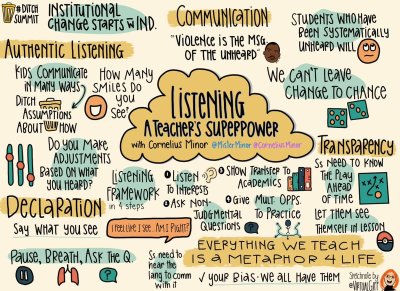 #DITCH
SUMMIT
INSTITUTIONAL
CHANGE STARTS W IND.
COMMUNICATION
"VIOLENCE IS THE MSG
OF THE UNHEARD"
STUDENTS WHO HAVE
BEEN SYSTEMATICALLY
UNHEARD WILL
AUTHENTIC LISTENING
KIDS COMMUNICATE
IN MANY WAYS
HOW MANY
SMILES DO
YOU
SEE?
DITCH
ASSUMPTIONS
ABOUT HOW
LISTENING
A TEACHER'S SUPERPOWER
with CORNELIUS MINOR @MisterMinor @CorneliusMinor
WE CAN'T LEAVE
CHANGE TO CHANCE
DO YOU MAKE
ADJUSTMENTS
BASED ON WHAT
YOU HEARD?
LISTENING
FRAMEWORK
in 4 steps
1 LISTEN
TO INTERESTS
2 ASK NON-
JUDGMENTAL
QUESTIONS
3 SHOW TRANSFER TO
ACADEMICS
4 GIVE MULT. OPPS.
TO PRACTICE
TRANSPARENCY
Ss NEED TO KNOW
THE PLAY
AHEAD OF
TIME
LET THEM SEE
THEMSELF IN LESSON
DECLARATION
SAY WHAT YOU SEE
I FEEL LIKE I SEE... AM I RIGHT?
PAUSE, BREATH, ASK THE Q
Ss need to
hear the
lang to comm
with it
EVERYTHING WE TEACH
IS A METAPHOR 4 LIFE
✓ YOUR BIAS - WE ALL HAVE THEM
Sketchnote by